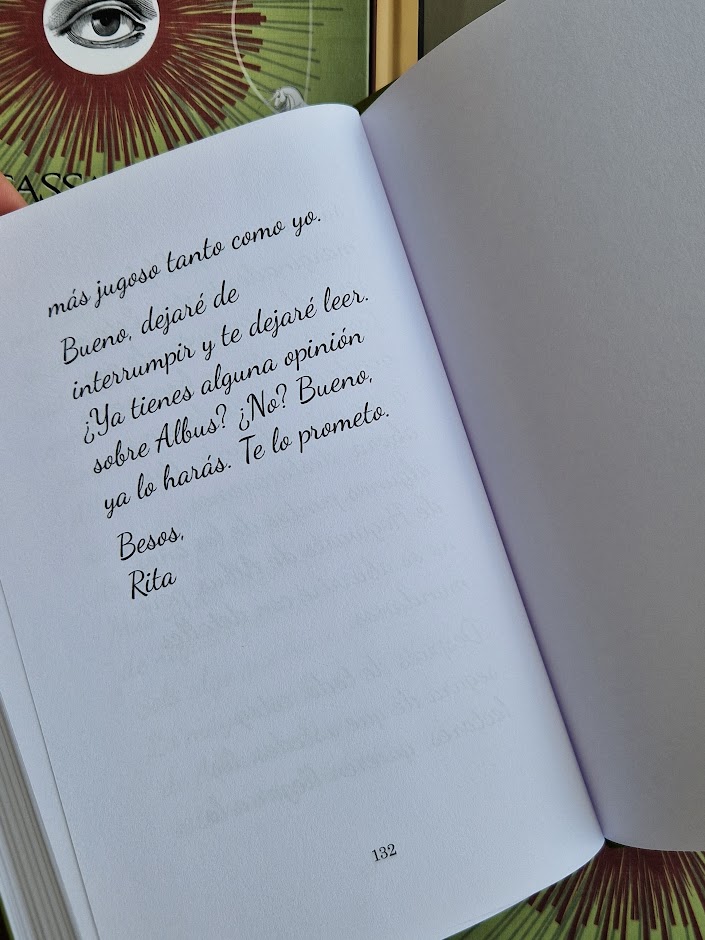 más jugoso tanto como yo.
Bueno, dejaré de
interrumpir y te dejaré leer.
¿Ya tienes alguna opinión
sobre Albus? ¿No? Bueno,
ya lo harás. Te lo prometo.
Besos,
Rita
132